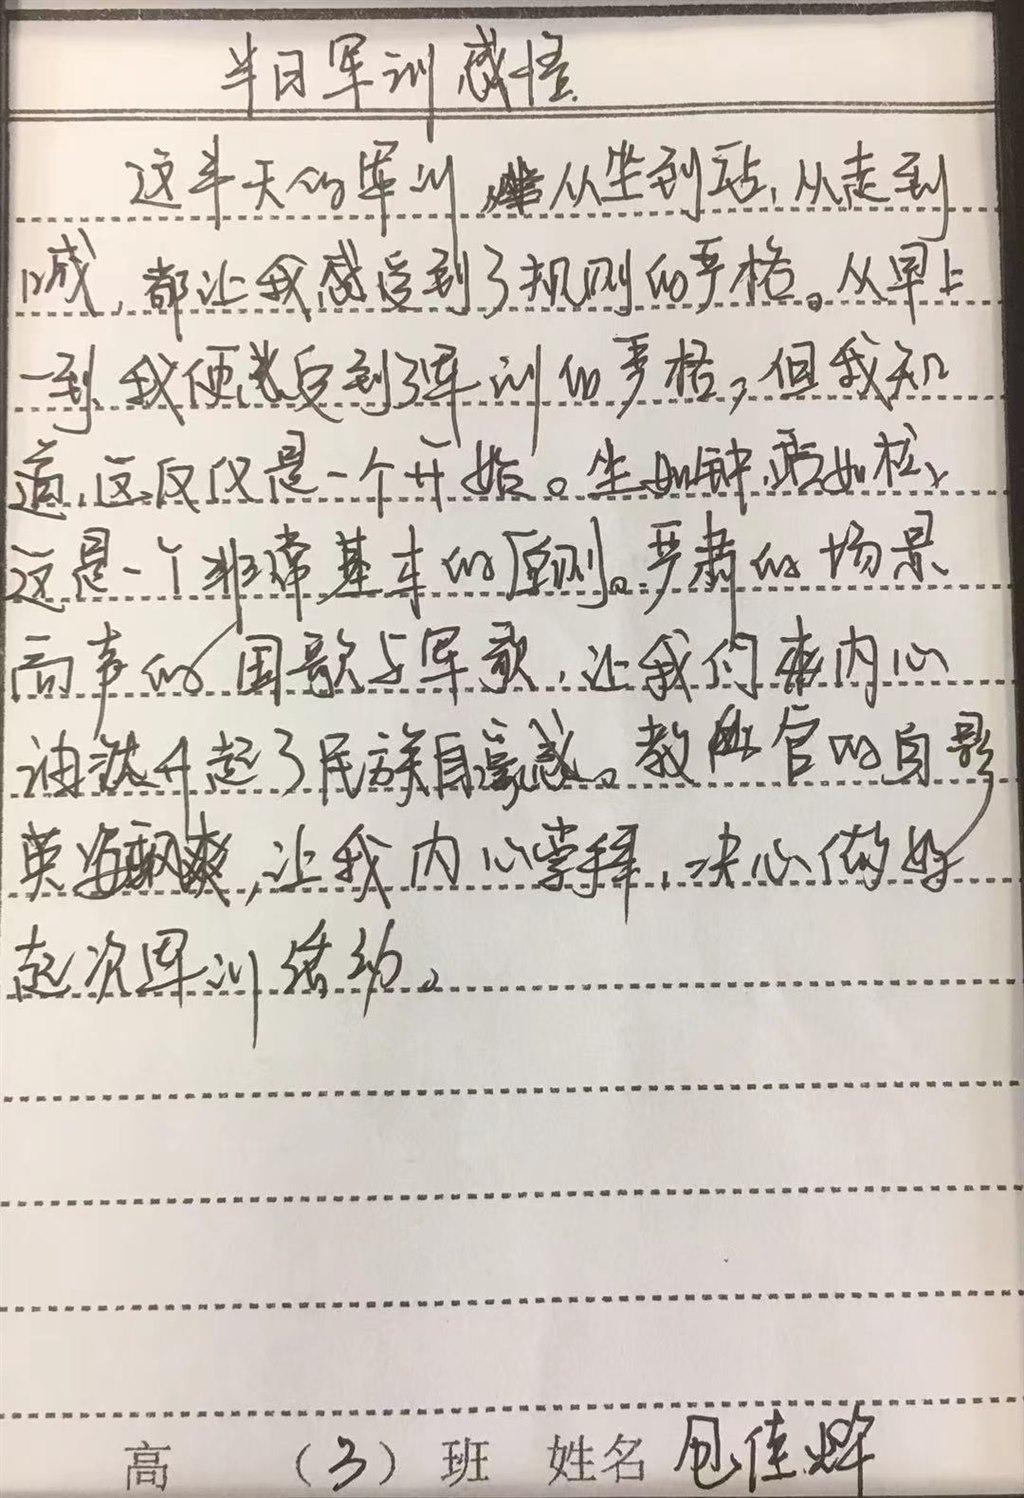 半日军训感悟
这半天的军训,从坐到站,从走到
喊,都让我感受到了规则的严格。从早上
一到,我便感受到了军训的严格,但我知
道,这仅仅是一个开始。坐如钟,站如松,
这是一个非常基本的原则。严肃的场景
高声的国歌与军歌,让我们内心
油然升起了民族自豪感。教官的身影
英姿飒爽,让我内心崇拜,决心做好
起次军训活动。
高 (3) 班 姓名 包佳烨